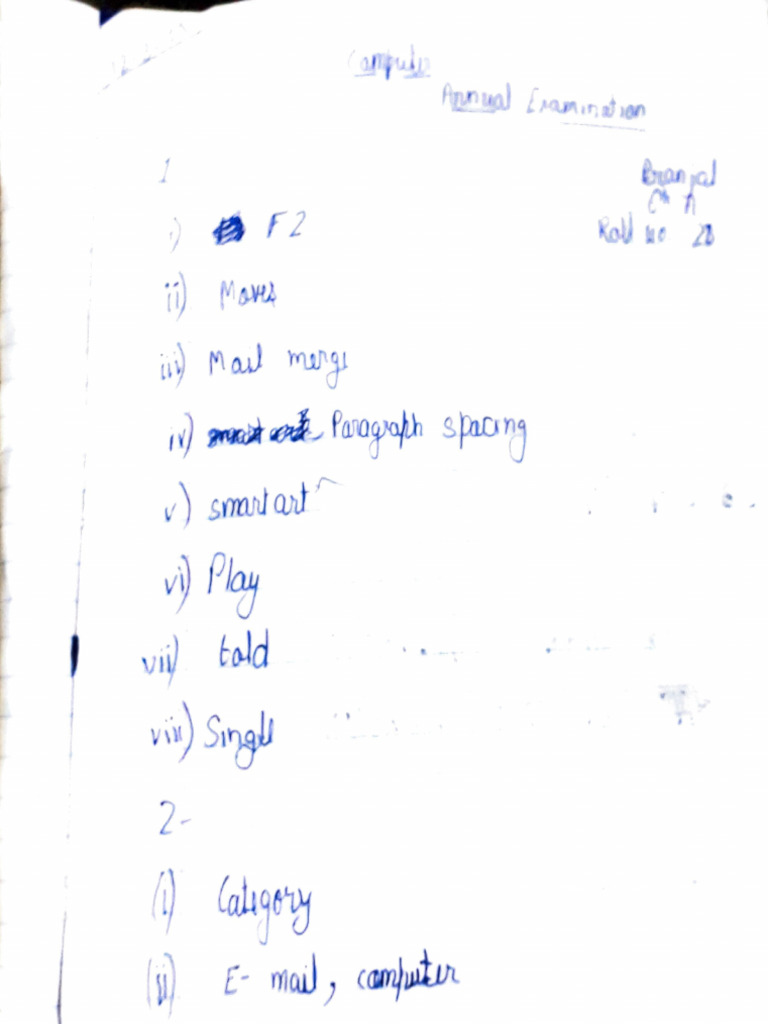 Computer
Annual Examination
1
i) F2
Roll no 28
ii) Moves
iii) Mail merge
iv) Paragraph spacing
v) smart art
vi) Play
vii) told
viii) Single
2-
(i) Category
(ii) E-mail, computer